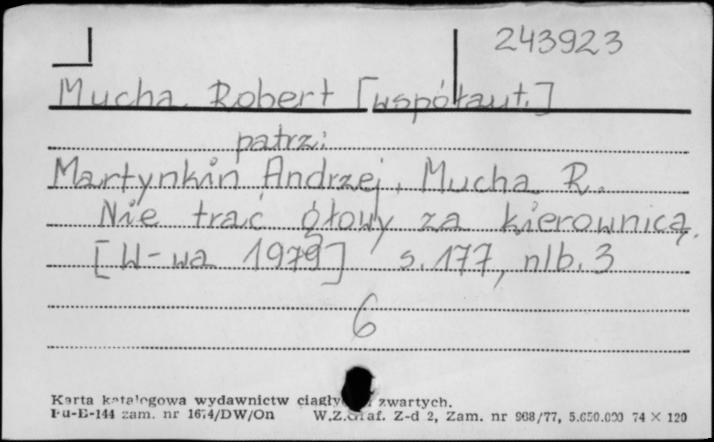 243923
Mucha Robert [współaut.]
patrz:
Martynkin Andrzej, Mucha R.
Nie trać głowy za kierownicą.
[W-wa 1979] s. 177, nlb. 3
6
Karta katalogowa wydawnictw zwartych.
Pu-E-144 zam. nr 1674/DW/On W.Z.Graf. Z-d 2, Zam. nr 968/77, 5.650.000 74 × 120